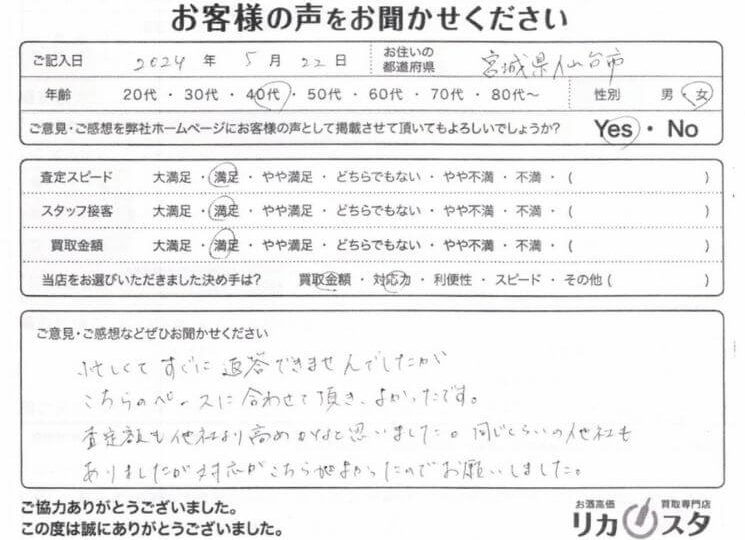 お客様の声をお聞かせください
ご記入日 2024 年 5 月 22 日 お住いの都道府県 宮城県仙台市
年齢 20代 ・ 30代 ・ 40代 ・ 50代 ・ 60代 ・ 70代 ・ 80代〜 性別 男 ・ 女
ご意見・ご感想を弊社ホームページにお客様の声として掲載させて頂いてもよろしいでしょうか? Yes ・ No
査定スピード 大満足 ・ 満足 ・ やや満足 ・ どちらでもない ・ やや不満 ・ 不満 ・ ( )
スタッフ接客 大満足 ・ 満足 ・ やや満足 ・ どちらでもない ・ やや不満 ・ 不満 ・ ( )
買取金額 大満足 ・ 満足 ・ やや満足 ・ どちらでもない ・ やや不満 ・ 不満 ・ ( )
当店をお選びいただきました決め手は? 買取金額 ・ 対応力 ・ 利便性 ・ スピード ・ その他 ( )
ご意見・ご感想などぜひお聞かせください
忙しくてすぐに返答できませんでしたが
こちらのペースに合わせて頂き、よかったです。
査定額も他社より高めかなと思いました。同じくらいの他社も
ありましたが対応がこちらがよかったのでお願いしました。
ご協力ありがとうございました。
この度は誠にありがとうございました。
お酒高価 買取専門店
リカスタ